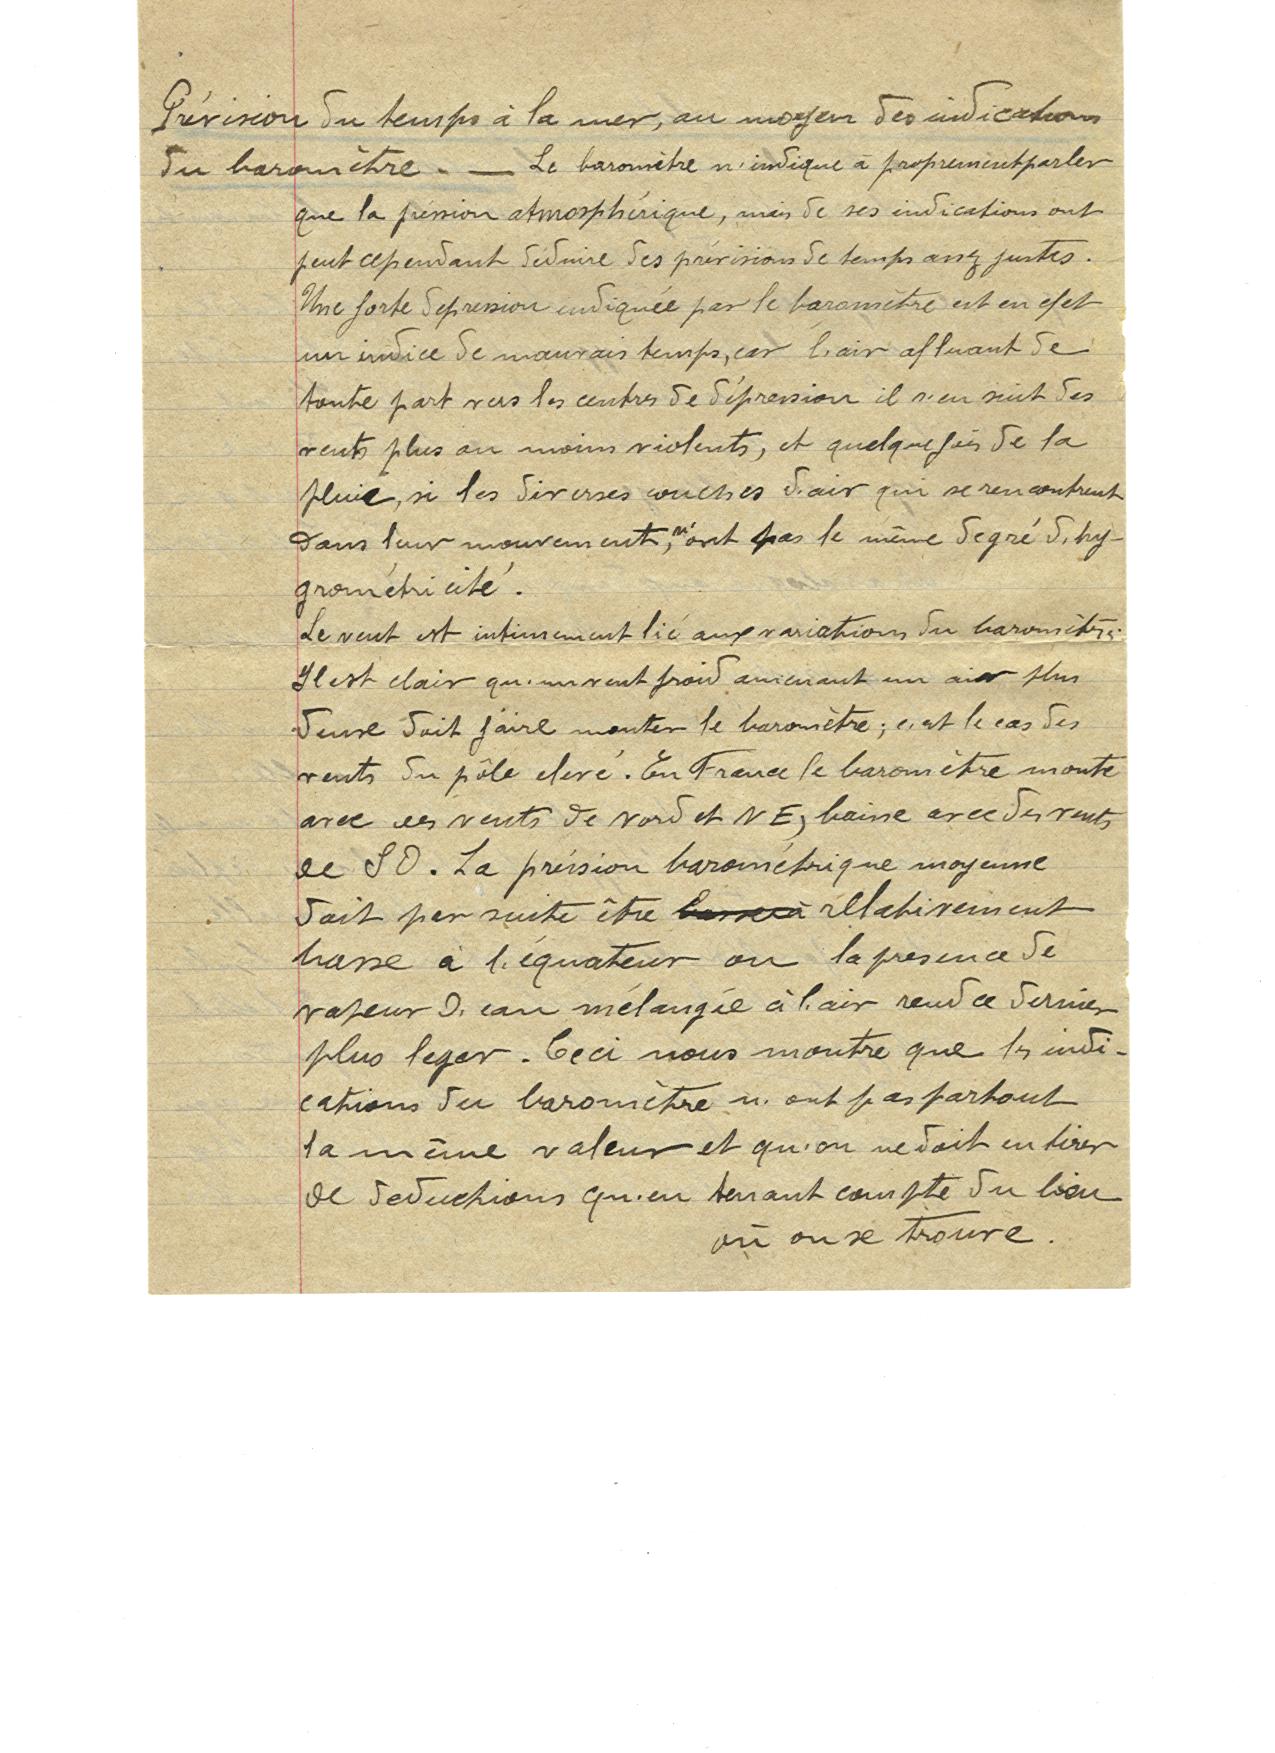 Prévision du temps à la mer, au moyen des indications
du baromètre. — Le baromètre n'indique à proprement parler
que la préssion atmosphérique, mais de ses indications ont
peut cependant déduire des prévisions de temps assez justes.
Une forte dépression indiquée par le baromètre est en efet
un indice de mauvais temps, car l'air afluant de
toute part vers les centres de dépression il s'en suit des
vents plus ou moins violents, et quelquefois de la
pluie, si les diverses couches d'air qui se rencontrent
dans leur mouvement, n'ont pas le même degré d'hy-
grométricité.
Le vent est intimement lié aux variations du baromètre.
Il est clair qu'un vent froid amenant un air plus
dense doit faire monter le baromètre; c'est le cas des
vents du pôle elevé. En France le baromètre monte
avec des vents de Nord et NE, baisse avec des vents
de SO. La préssion barométrique moyenne
doit par suite être basse à rellativement
basse à l'équateur ou la presence de
vapeur d'eau mélangée à l'air rend ce dernier
plus leger. Ceci nous montre que les indi-
cations du baromètre n'ont pas partout
la même valeur et qu'on ne doit en tirer
de deductions qu'en tenant compte du lieu
où on se trouve.